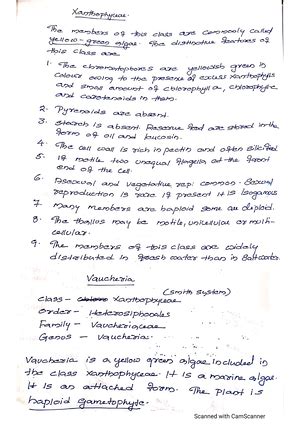 Xanthophyceae.
The members of this class are commonly called
yellow-green algae. The distinctive features of
this class are.
1. The chromatophores are yellowish green in
colour owing to the presence of excess xanthophylls
and small amount of chlorophyll a, chlorophyll e
and carotenoids in them.
2. Pyrenoids are absent.
3. Starch is absent Reserve food are stored in the
form of oil and leucosin.
4. The cell wall is rich in pectin and often silicified
5. If motile two unequal flagella at the front
end of the cell.
6. Asexual and vegetative rep: common. Sexual
reproduction is rare if present it is Isogamous
7. Many members are haploid some are diploid.
8. The thallus may be motile, unicellular or multi-
cellular.
9. The members of this class are widely
distributed in fresh water than in Saltwater.
Vaucheria
(smith system)
Class - Xanthophyceae
Order - Heterosiphonales
Family - Vaucheriaceae
Genus - Vaucheria.
Vaucheria is a yellow green algae included in
the class Xanthophyceae. It is a marine algae.
It is an attached form. The plant is
haploid gametophyte.
Scanned with CamScanner